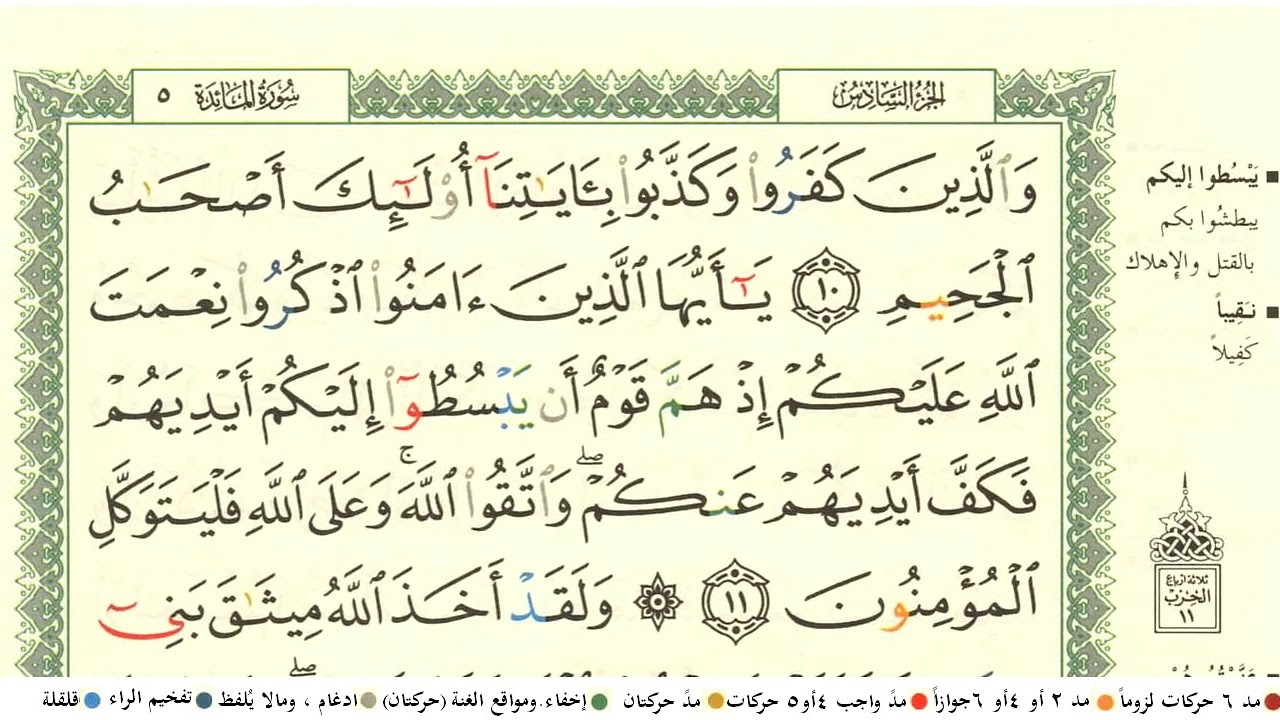 سُورَةُ المَائِدَة ٥
الجُزءُ السَّادِسُ
وَٱلَّذِينَ كَفَرُوا۟ وَكَذَّبُوا۟ بِـَٔايَـٰتِنَآ أُو۟لَـٰٓئِكَ أَصْحَـٰبُ
ٱلْجَحِيمِ ١٠ يَـٰٓأَيُّهَا ٱلَّذِينَ ءَامَنُوا۟ ٱذْكُرُوا۟ نِعْمَتَ
ٱللَّهِ عَلَيْكُمْ إِذْ هَمَّ قَوْمٌ أَن يَبْسُطُوٓا۟ إِلَيْكُمْ أَيْدِيَهُمْ
فَكَفَّ أَيْدِيَهُمْ عَنكُمْ ۖ وَٱتَّقُوا۟ ٱللَّهَ ۚ وَعَلَى ٱللَّهِ فَلْيَتَوَكَّلِ
ٱلْمُؤْمِنُونَ ١١ ۞ وَلَقَدْ أَخَذَ ٱللَّهُ مِيثَـٰقَ بَنِىٓ
■ يَبْسُطوا إليكم
يبطشُوا بكم
بالقتل والإهلاك
■ نَقِيباً
كَفِيلاً
ثلاثة أرباع
الحِزْب
١١
مد ٦ حركات لزوماً مد ٢ أو ٤ أو ٦ جوازاً مدّ واجب ٤ أو ٥ حركات مدّ حركتان إخفاء. ومواقع الغنة (حركتان) ادغام ، ومالا يُلفظ تفخيم الراء قلقلة